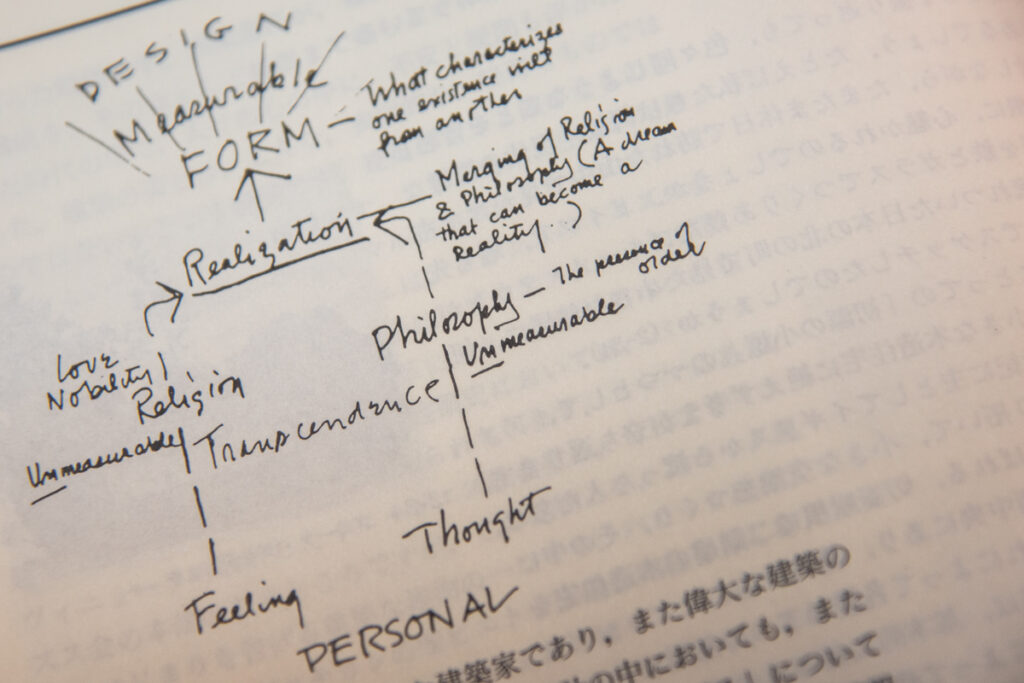 DESIGN
Measurable
FORM — What characterizes
one existence will
from another
Merging of Religion
& Philosophy (A dream
that can become a
reality.)
Realization
Philosophy — The presence of
order
Unmeasurable
Love
Nobility
Religion
Unmeasurable
Transcendence
Thought
Feeling
PERSONAL
建築家であり，また偉大な建築の
の中においても，また
について